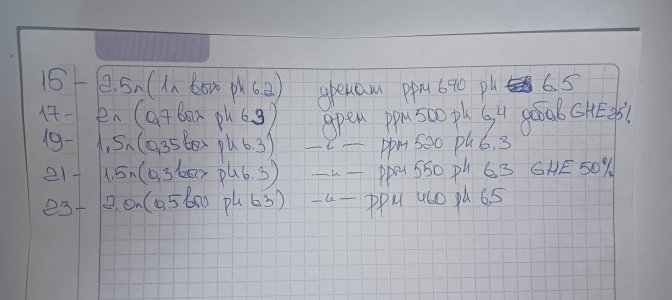 15 - 2.5л (1л вых ph 6.2) дренаж ppm 690 ph 6.5
17 - 2л (0,7 вых ph 6.9) дрен ppm 500 ph 6,4 добав GHE 25%
19 - 1,5л (0,35 вых ph 6.3) -"- ppm 520 ph 6.3
21 - 1.5л (0,3 вых ph 6.3) -"- ppm 550 ph 6.3 GHE 50%
23 - 2.0л (0,5 вых ph 6.3) -"- ppm 460 ph 6.5